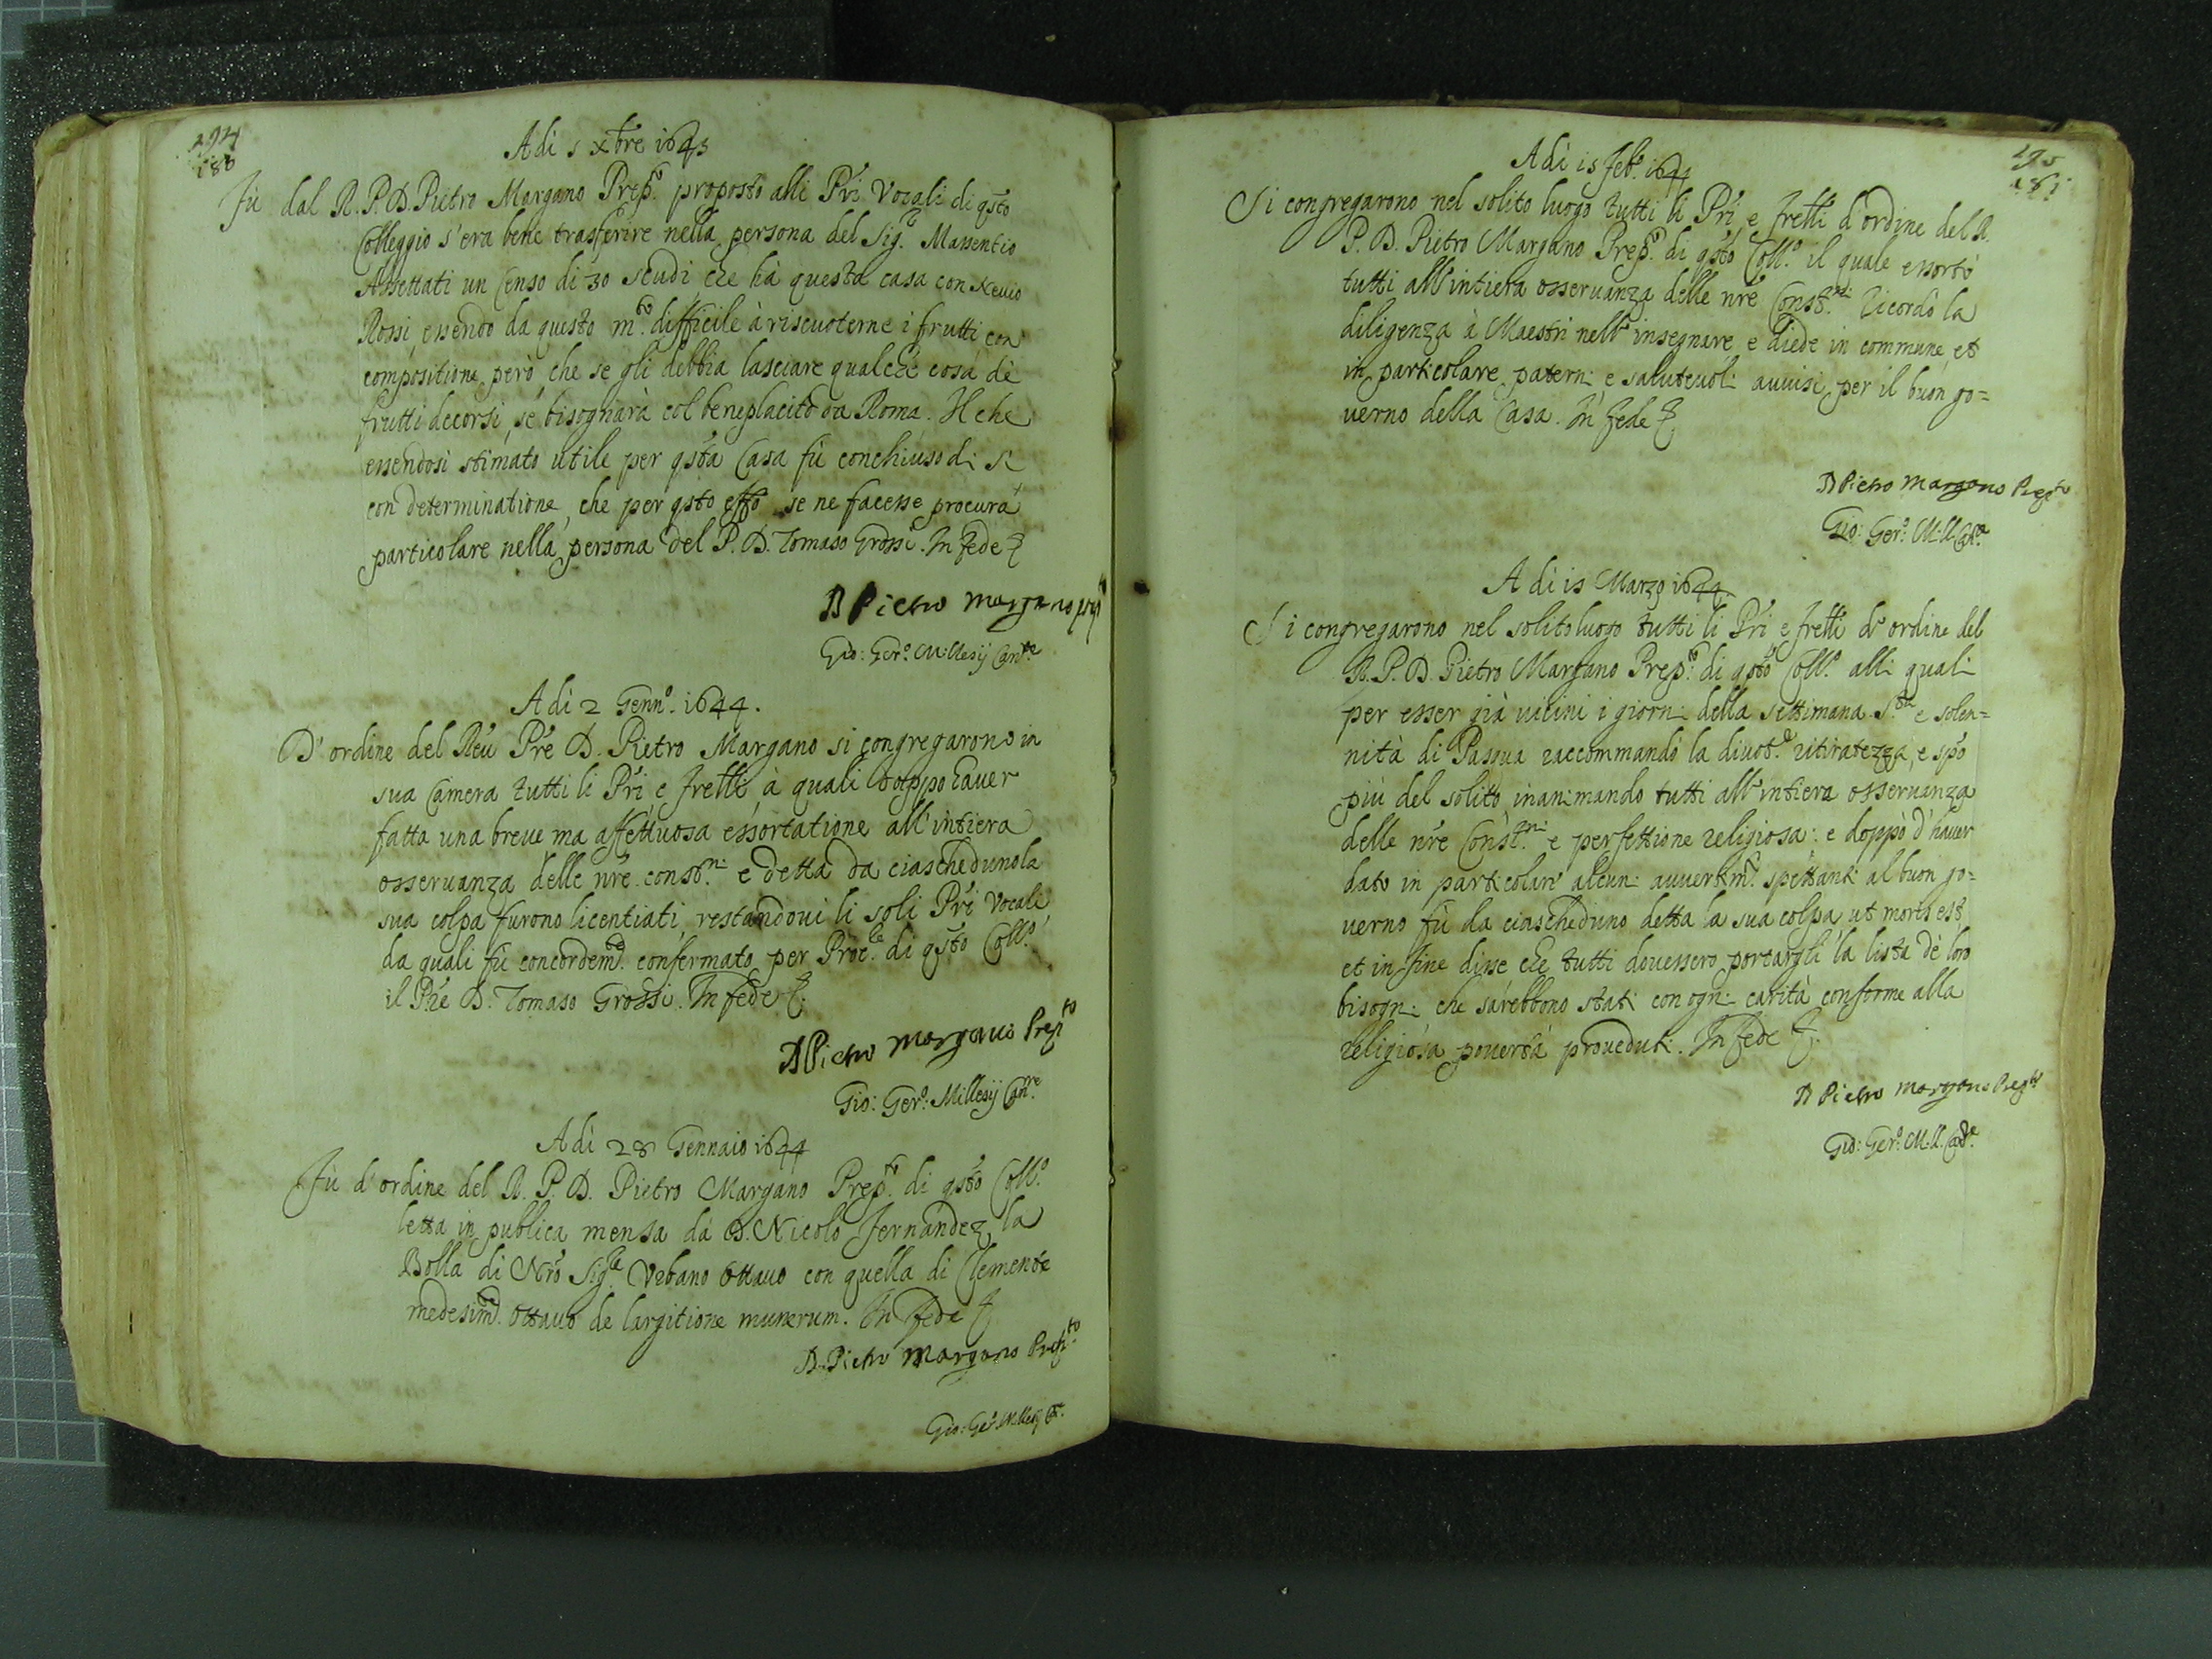 294
180
Adi 5 Xbre 1643
Fù dal R. P. D. Pietro Margano Prepto. proposto alli Pri Vocali di qsto
Colleggio s'era bene trasferire nella persona del Sigre. Massentio
Assettati un Censo di 30 scudi che hà questa casa con Nevio
Rossi, essendo da questo mto. difficile à riscuoterne i frutti con
compositione però, che se gli debbia lasciare qualche cosa de
frutti decorsi, se bisognarà col beneplacito da Roma. Il che
essendosi stimato utile per qsta Casa fù conchiuso di sì
con determinatione, che per qsto effo se ne facesse procura
particolare nella persona del P. D. Tomaso Grossi. In fede &
D Pietro Margano prepto
Gio: Gero. Millesij Canre.
Adi 2 Genno. 1644.
D'ordine del Reu Pre D. Pietro Margano si congregarono in
sua Camera tutti li Pri e frelli, à quali doppo hauer
fatta una breue ma affettuosa essortatione all'intiera
osseruanza delle nre constni. e detta da ciaschedunola
sua colpa furono licentiati, restandoui li soli Pri Vocali
da quali fù concordemte. confermato per Procle. di qsto Collo.
il Pre D. Tomaso Grossi. In fede &.
D Pietro Margano Prepto
Gio: Gero: Millesij Canre.
Adi 28 Gennaio 1644
Fù d'ordine del R. P. D. Pietro Margano Prepto. di qsto Collo.
letta in publica mensa da D. Nicolò Fernandez la
Bolla di Nro Sigre. Vrbano Ottauo con quella di Clemente
medesimte. Ottauo de largitione munerum. In fede &
D. Pietro Margano Prepto.
Gio: Gero. Millesij Cre.
295
181
Adi 15 Febo. 1644
Si congregarono nel solito luogo tutti li Pri, e frelli d'ordine del R.
P. D. Pietro Margano Prepto. di qsto Collo. il quale essortò
tutti all'intiera osseruanza delle nre Constni. ricordò la
diligenza à Maestri nell'insegnare, e diede in commune, et
in particolare paterni e saluteuoli auuisi per il buon go=
uerno della Casa. In fede &.
D Pietro Margano Prepto
Gio: Gero: Mill. Canre.
Adi 15 Marzo 1644.
Si congregarono nel solito luogo tutti li Pri e frelli d'ordine del
R. P. D. Pietro Margano Prepto. di qsto Collo. alli quali
per esser già uicini i giorni della settimana Sta e solen=
nità di Pasqua raccommandò la diuote. ritiratezza, e spo
più del solitto inanimando tutti all'intiera osseruanza
delle nre Constni. e perfettione religiosa: e doppo d'hauer
dato in particolare alcuni auuertimti. spettanti al buon go=
uerno fù da ciascheduno detta la sua colpa ut moris est,
et in fine disse che tutti douessero portargli la lista de loro
bisogni che sarebbono stati con ogni carità conforme alla
religiosa pouertà proueduti. In fede &.
D Pietro Margano Prepto.
Gio: Gero: Mill. Canre.